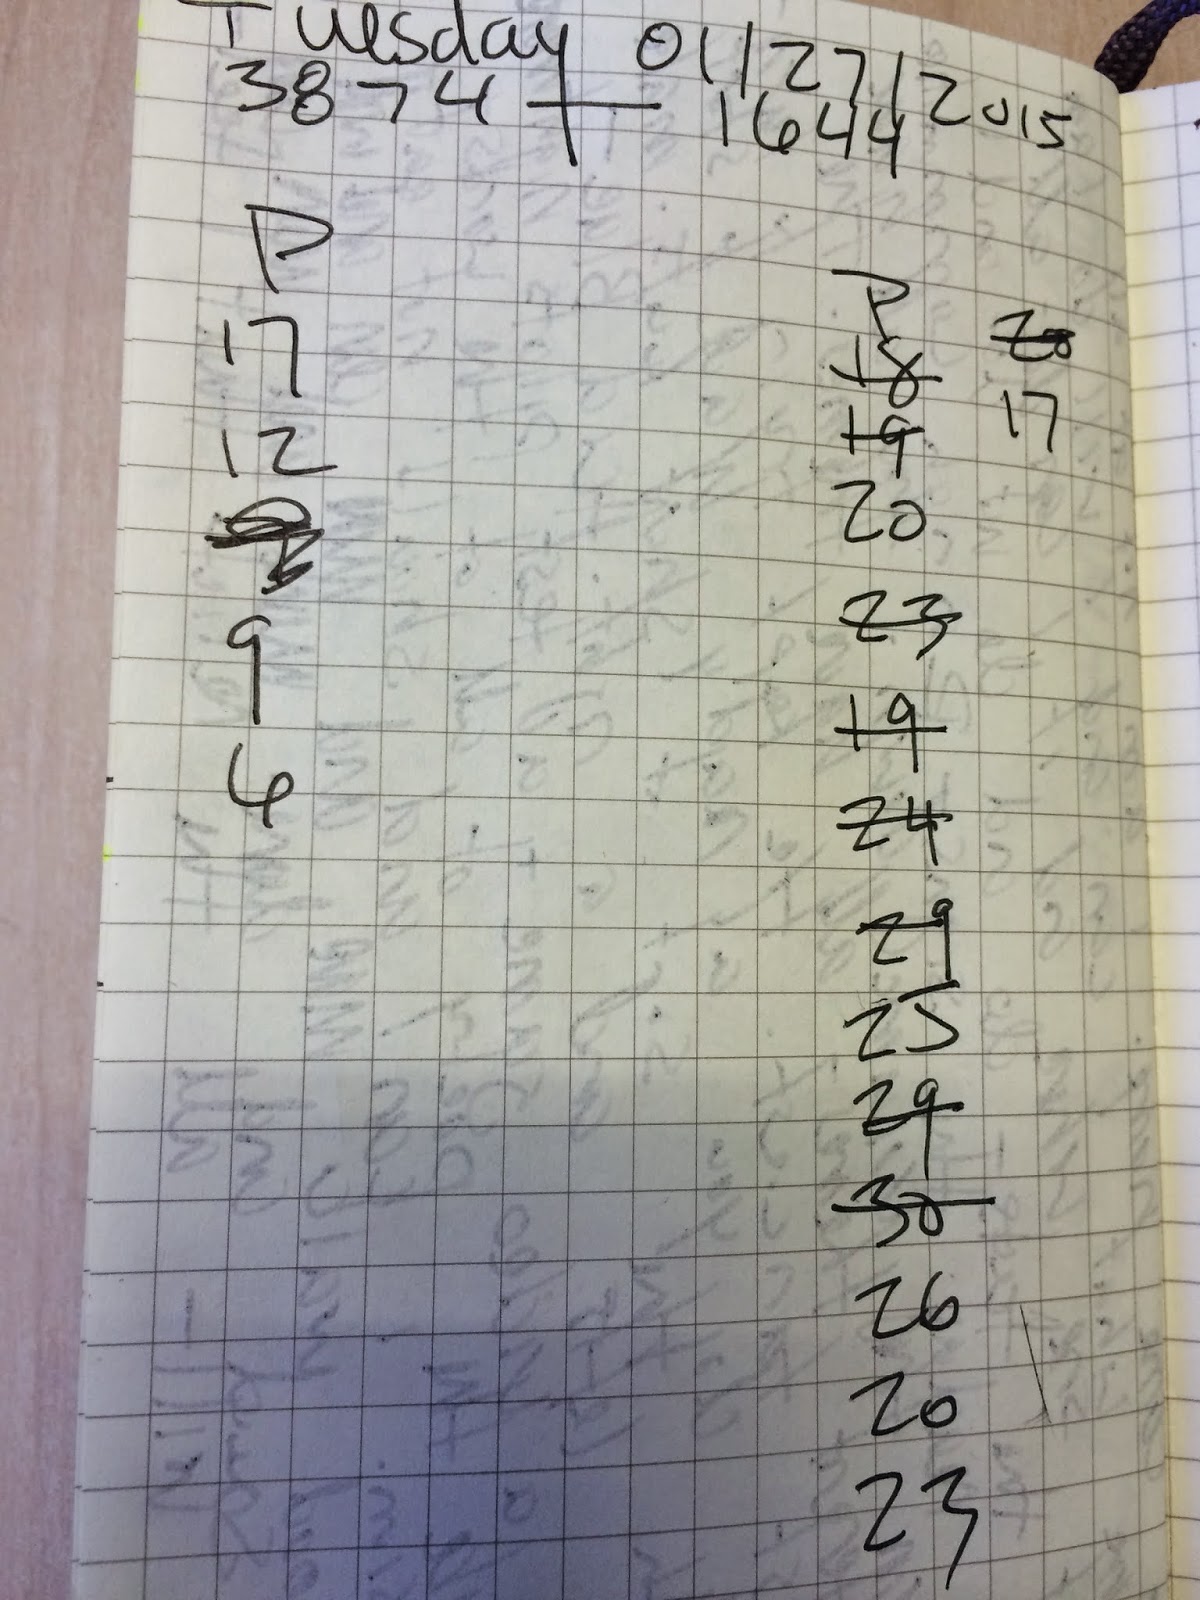 Tuesday 01/27/2015
3874 + 1644
P
17
12
9
6
P
18
19
20
23
19
24
29
25
29
30
26
20
23
20
17